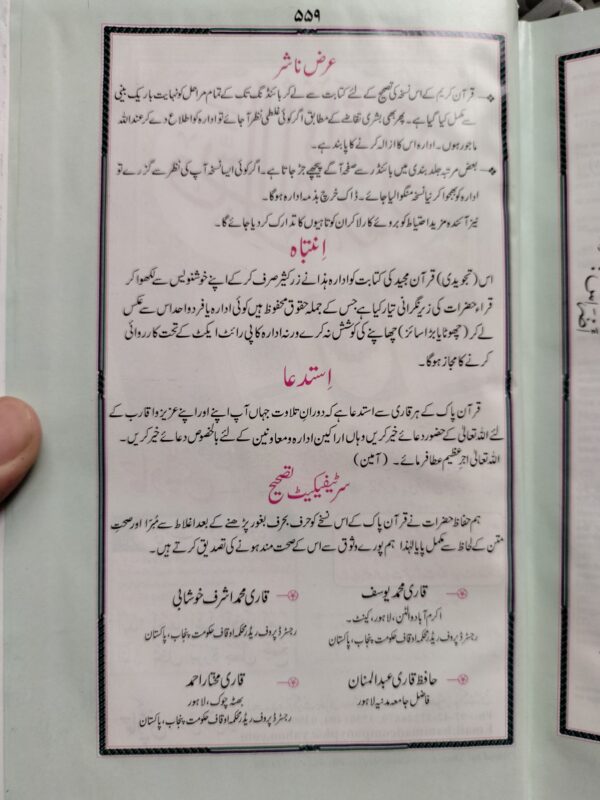 ۵۵۹
عرض ناشر
قرآن کریم کے اس نسخہ کی تصحیح کے لئے کتابت سے لے کر بائنڈنگ تک کے تمام مراحل کو نہایت باریک بینی
سے مکمل کیا گیا ہے۔ پھر بھی بشری تقاضے کے مطابق اگر کوئی غلطی نظر آجائے تو ادارہ کو اطلاع دے کر عنداللہ
ماجور ہوں۔ ادارہ اس کا ازالہ کرنے کا پابند ہے۔
بعض مرتبہ جلد بندی میں بائنڈر سے صفحہ آگے پیچھے جڑ جاتا ہے۔ اگر کوئی ایسا نسخہ آپ کی نظر سے گزرے تو
ادارہ کو بھجوا کر نیا نسخہ منگوالیا جائے۔ ڈاک خرچ بذمہ ادارہ ہوگا۔
نیز آئندہ مزید احتیاط کو بروئے کار لا کر ان کوتاہیوں کا تدارک کر دیا جائے گا۔
اِنتباہ
اس (تجویدی) قرآن مجید کی کتابت کو ادارہ ہذا نے زر کثیر صرف کر کے اپنے خوشنویس سے لکھوا کر
قراء حضرات کی زیر نگرانی تیار کیا ہے جس کے جملہ حقوق محفوظ ہیں کوئی ادارہ یا فرد واحد اس سے عکس
لے کر (چھوٹا یا بڑا سائز) چھاپنے کی کوشش نہ کرے ورنہ ادارہ کاپی رائٹ ایکٹ کے تحت کارروائی
کرنے کا مجاز ہوگا۔
اِستدعا
قرآن پاک کے ہر قاری سے استدعا ہے کہ دورانِ تلاوت جہاں آپ اپنے اور اپنے عزیز و اقارب کے
لئے اللہ تعالیٰ کے حضور دعائے خیر کریں وہاں اراکین ادارہ و معاونین کے لئے بالخصوص دعائے خیر کریں۔
اللہ تعالیٰ اجر عظیم عطا فرمائے۔ (آمین)
سرٹیفیکیٹ تصحیح
ہم حفاظ حضرات نے قرآن پاک کے اس نسخے کو حرف بحرف بغور پڑھنے کے بعد اغلاط سے مُبرّا اور صحتِ
متن کے لحاظ سے مکمل پایا لہٰذا ہم پورے وثوق سے اس کے صحت مند ہونے کی تصدیق کرتے ہیں۔
قاری محمد یوسف
اکرم آباد والٹن، لاہور، کینٹ۔
رجسٹرڈ پروف ریڈر محکمہ اوقاف حکومت پنجاب، پاکستان
قاری محمد اشرف خوشابی
رجسٹرڈ پروف ریڈر محکمہ اوقاف حکومت پنجاب، پاکستان
حافظ قاری عبدالمنان
فاضل جامعہ مدنیہ لاہور
قاری مختار احمد
بھٹہ چوک، لاہور
رجسٹرڈ پروف ریڈر محکمہ اوقاف حکومت پنجاب، پاکستان